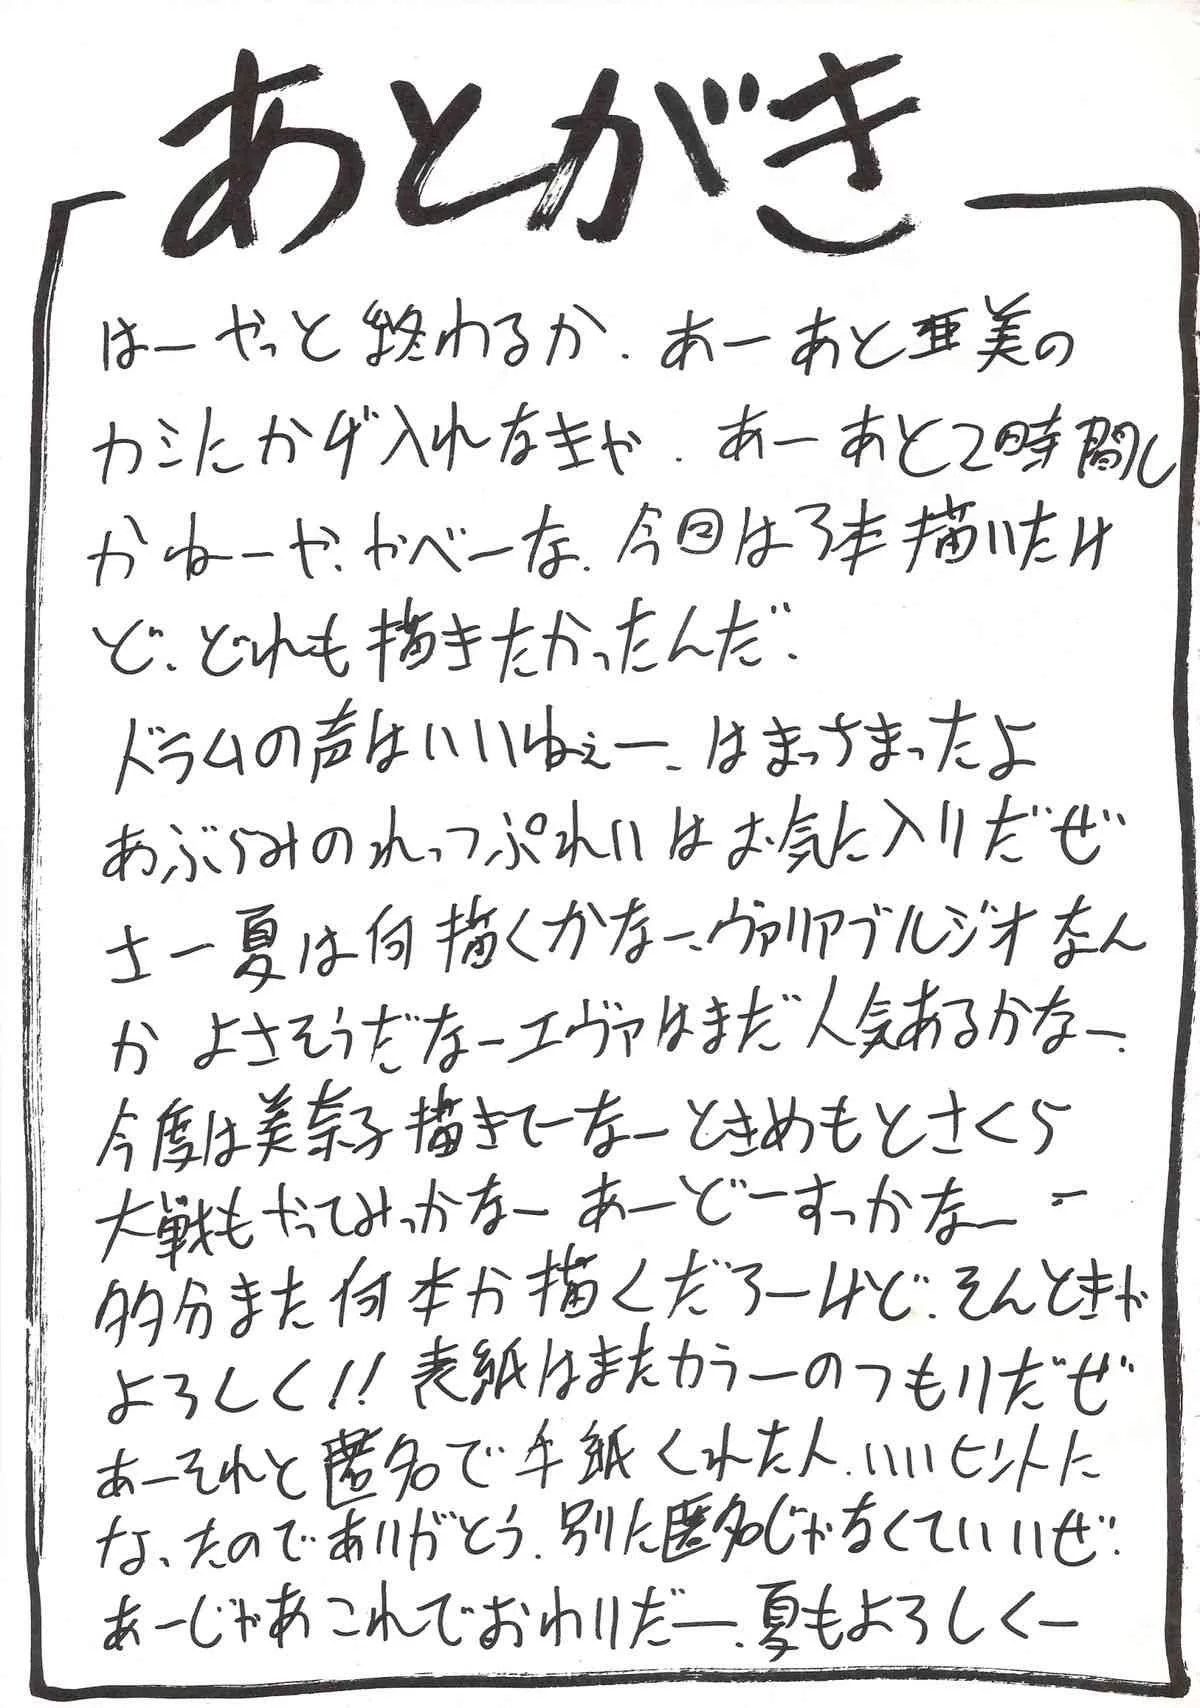 あとがき
はーやっと終わるか、あーあと亜美の
カミにかげ入れなきゃ、あーあと2時間し
かねーや、やべーな、今回は3本描いたけ
ど、どれも描きたかったんだ、
ドラムの声はいいねぇー、はまっさまったよ
あぶらみのれっつぷれいはお気に入りだぜ
さー夏は何描くかなー、ヴァリアブルジオなん
かよさそうだなーエヴァはまだ人気あるかなー、
今度は美奈子描きてーなーときめもとさくら
大戦もやってみっかなー あーどーすっかなーー
多分また何本か描くだろーけど、そんときゃ
よろしく!! 表紙はまたカラーのつもりだぜ
あーそれと匿名で手紙くれた人、いいヒントに
なったのでありがとう、別に匿名じゃなくていいぜ、
あーじゃあこれでおわりだー、夏もよろしくー